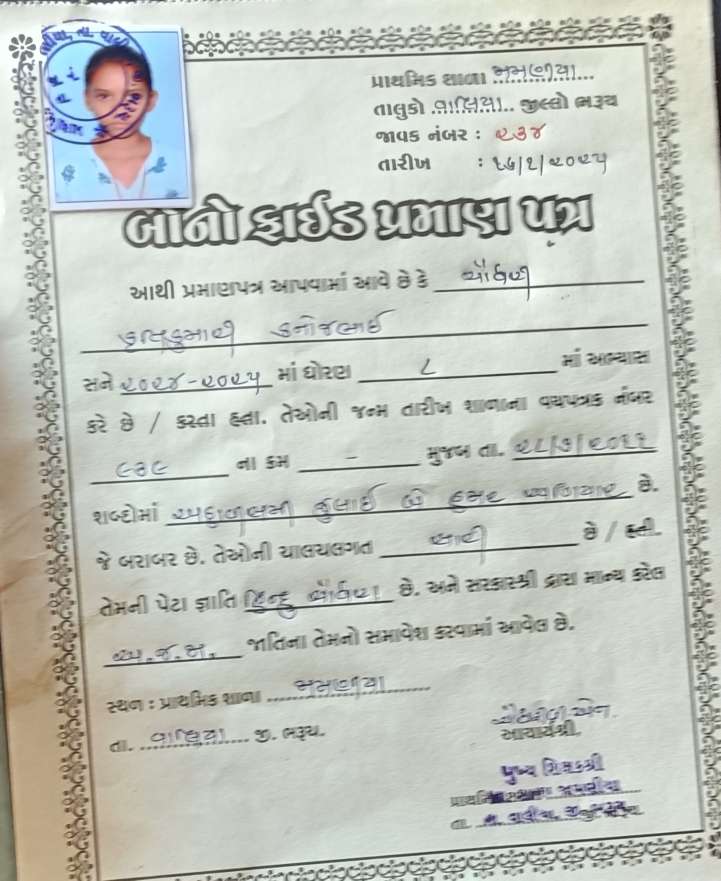 પ્રાથમિક શાળા
તાલુકો વાલિયા.. જીલ્લો ભરૂચ
જાવક નંબર : ૨૩૪
તારીખ : ૧૭/૨/૨૦૨૫
બોનોફાઈડ પ્રમાણ પત્ર
આથી પ્રમાણપત્ર આપવામાં આવે છે કે
મનોજભાઈ
સને ૨૦૨૪-૨૦૨૫ માં ધોરણ ૮ માં અભ્યાસ
કરે છે / કરતા હતા. તેઓની જન્મ તારીખ શાળાના વયપત્રક નંબર
ના ક્રમ - મુજબ તા. ૨૮/૭/૨૦૧૧
શબ્દોમાં જુલાઈ બે હજાર અગિયાર છે.
જે બરાબર છે. તેઓની ચાલચલગત સારી છે / હતી.
તેમની પેટા જ્ઞાતિ હિન્દુ છે. અને સરકારશ્રી દ્વારા માન્ય કરેલ
અ.જ.જા. જાતિના તેમનો સમાવેશ કરવામાં આવેલ છે.
સ્થળ : પ્રાથમિક શાળા
તા. વાલિયા.... જી. ભરૂચ.
આચાર્યશ્રી,
મુખ્ય શિક્ષકશ્રી